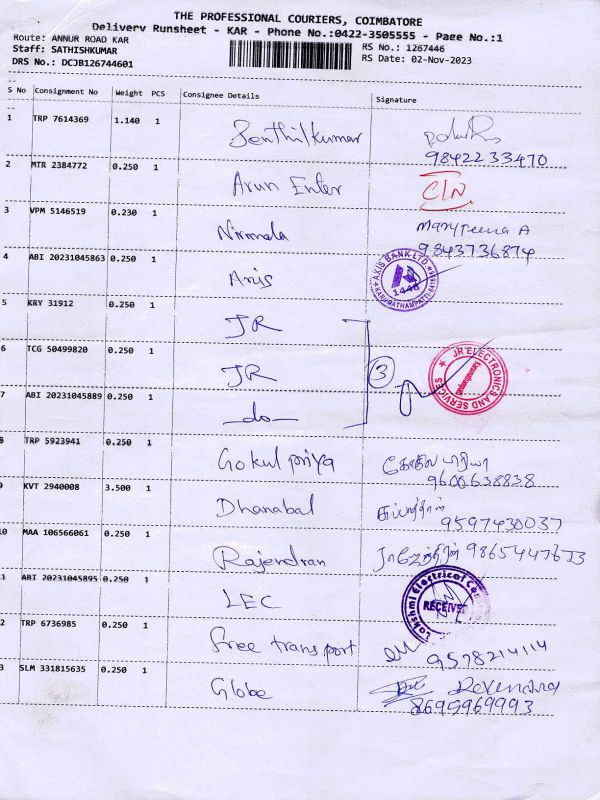 THE PROFESSIONAL COURIERS, COIMBATORE
Delivery Runsheet - KAR - Phone No.:0422-3505555 - Page No.:1
Route: ANNUR ROAD KAR
RS No.: 1267446
Staff: SATHISHKUMAR
RS Date: 02-Nov-2023
DRS No.: DCJB126744601
S No Consignment No Weight PCS Consignee Details Signature
1 TRP 7614369 1.140 1 Senthilkumar
9842233470
2 MTR 2384772 0.250 1 Arun Enter CIN
3 VPM 5146519 0.230 1 Nirmala Maryteena A
9843736874
4 ABI 20231045863 0.250 1 Axis
AXIS BANK LTD. 1448
5 KRY 31912 0.250 1 JR
6 TCG 50499820 0.250 1 JR 3
JR ELECTRONICS AND SERVICES
7 ABI 20231045889 0.250 1 -do-
8 TRP 5923941 0.250 1 Gokul priya
9600638838
9 KVT 2940008 3.500 1 Dhanabal
9597430037
10 MAA 106566061 0.250 1 Rajendran ராஜேந்திரன்
1 ABI 20231045895 0.250 1 LEC
Lakshmi Electrical RECEIVED
2 TRP 6736985 0.250 1 free transport
9578214114
3 SLM 331815635 0.250 1 Globe
8695969993